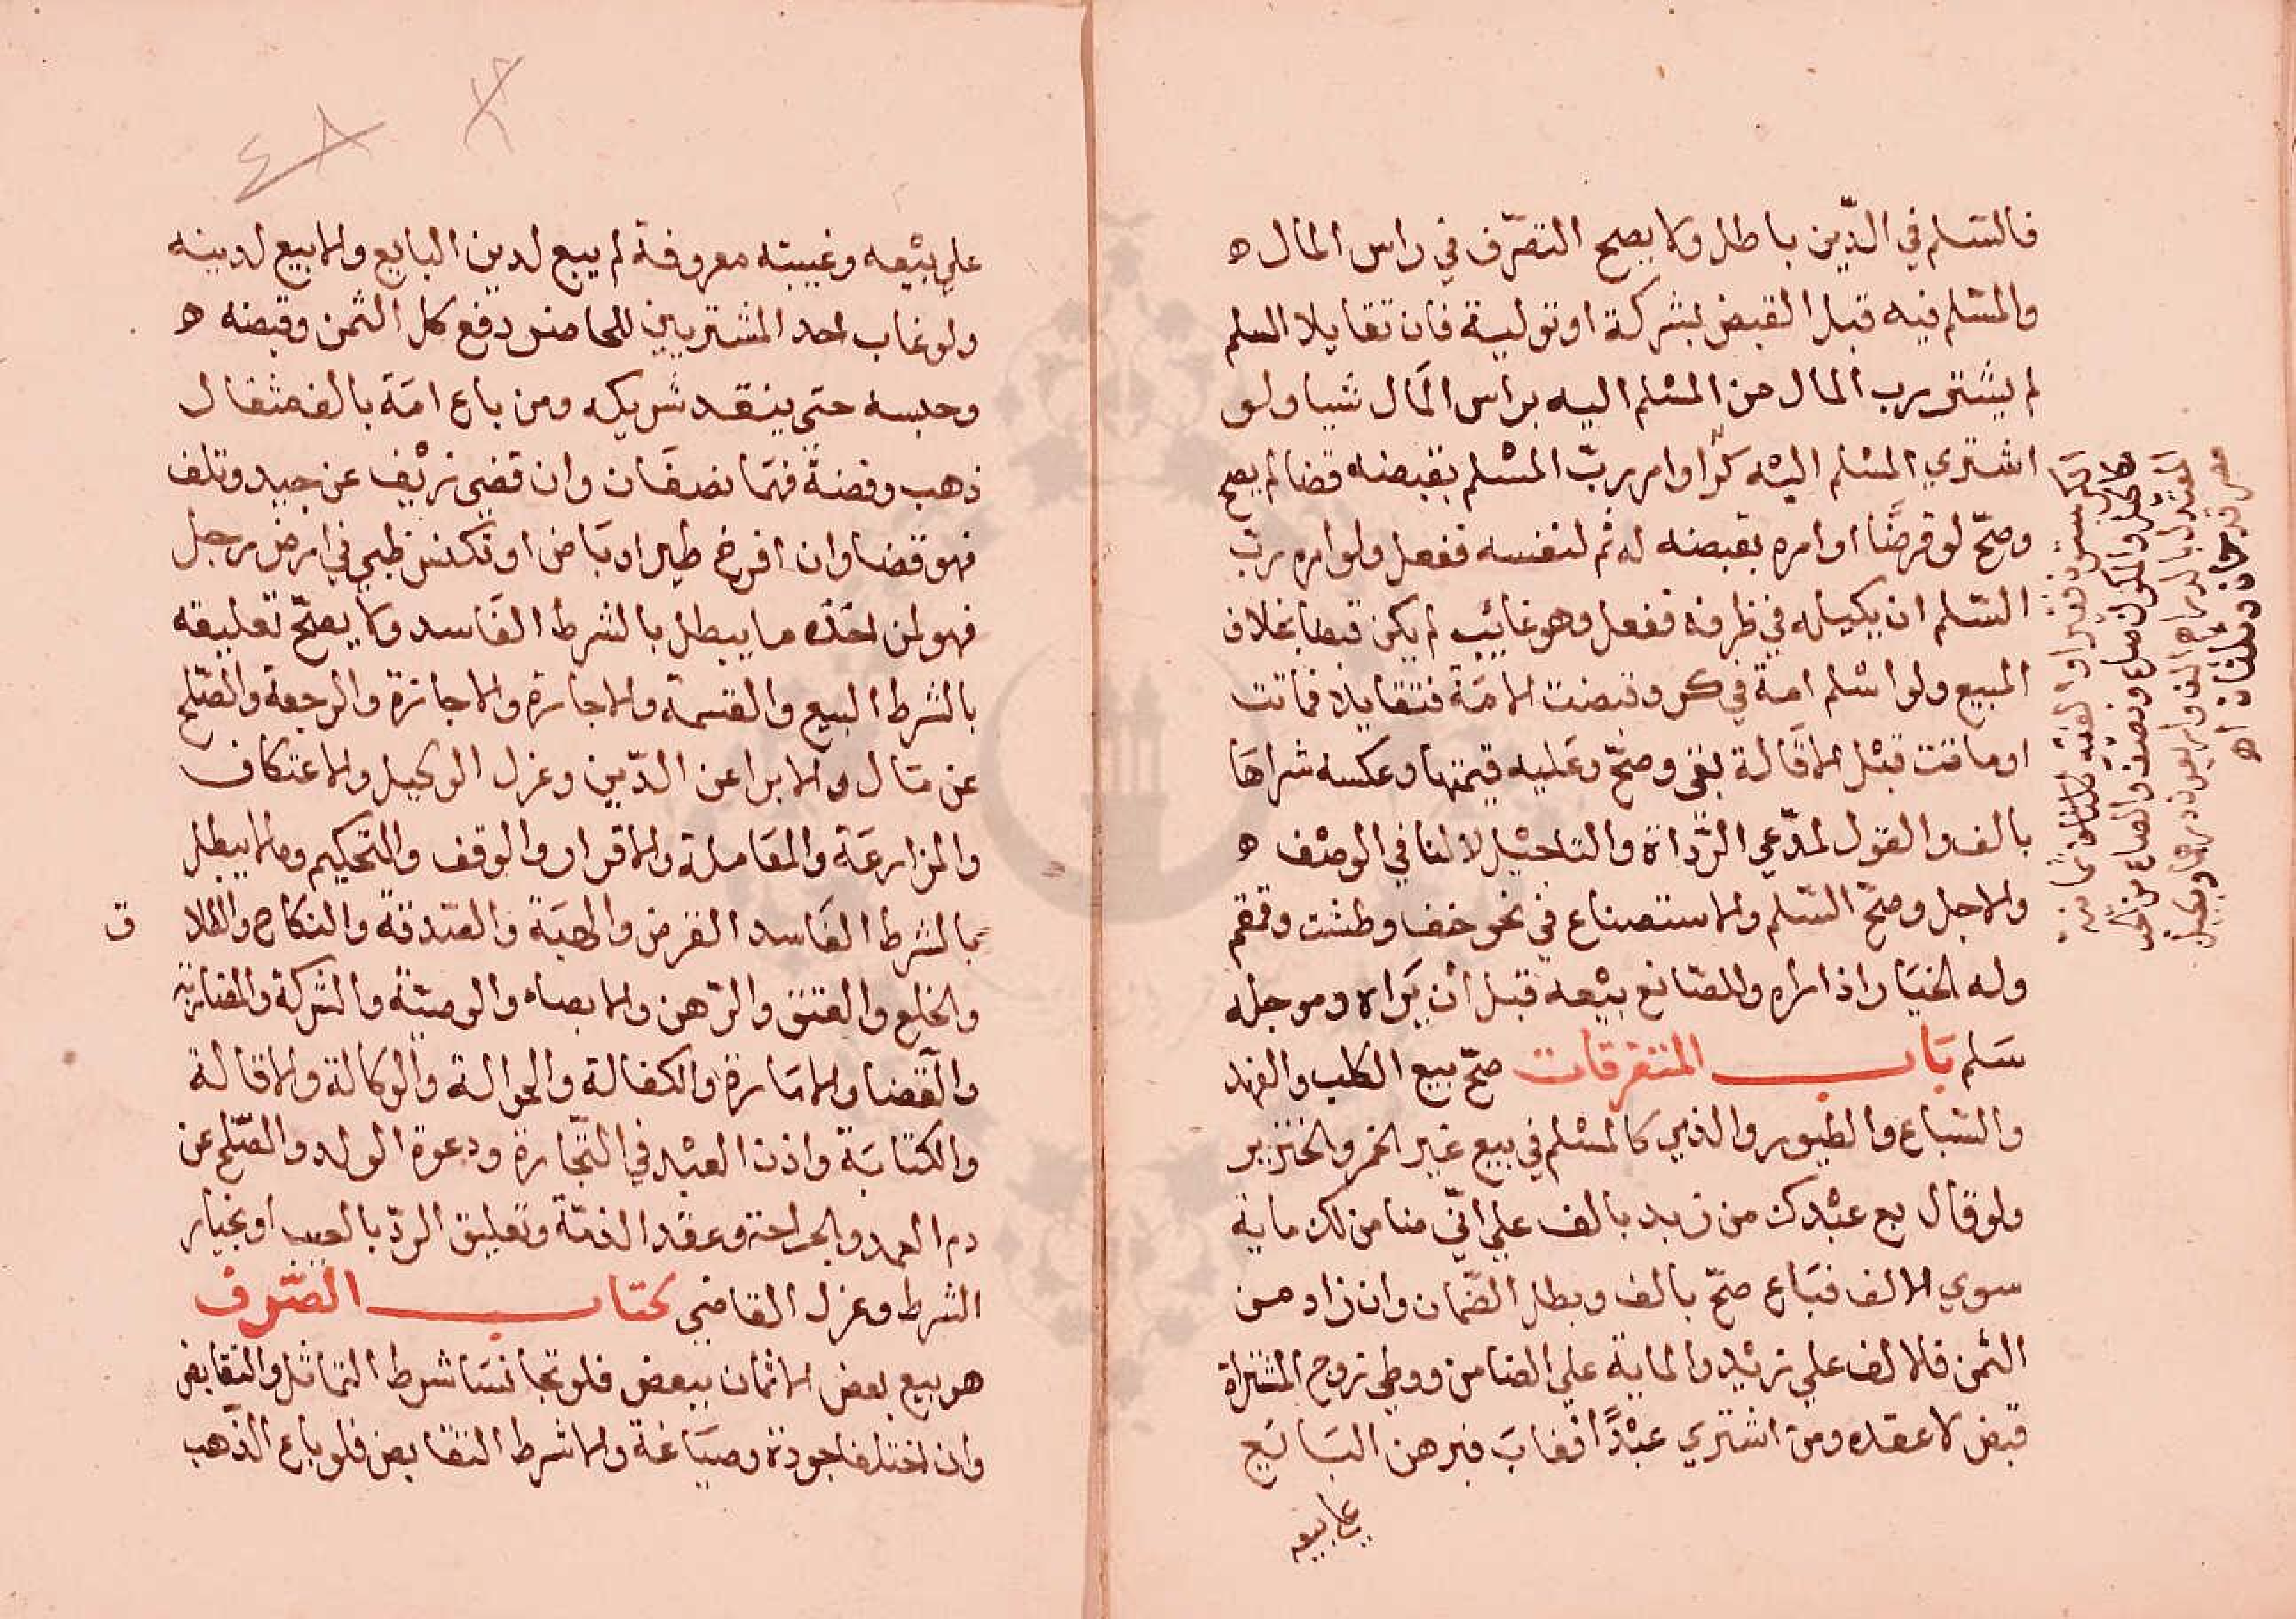 فالسّلم في الدّين باطل ولا يصح التصرّف في راس المال ه
والمسْلم فيه قبل القبض بشركة او تولية فان تقايلا السلم
لم يشتر رب المال من المسْلم اليه براس المَال شيا ولو
اشتري المسْلم اليْه كرًّا وامر ربّ المسْلم بقبضه قضا لم يصح
وصحّ لو قرضًا او امره بقبضه له ثم لنفسه ففعل ولو امره ربّ
السّلم ان يكيله في ظرفه ففعل وهو غائب لم يكن قبضا بخلاف
المبيع ولو اسْلم امة في كر وقبضت الامَة فتقايلا فماتت
او ماتت قبْل الاقَالة بقي وصحّ وعَليه قيمتها وعكسه شراهَا
بالف والقول لمدّعي الرَّداة والتاجيْل لا لنافي الوصْف ه
والاجل وصحّ السّلم والاستصناع في نحو خف وطشت وقمقم
وله الخيَار اذا راه وللصّانع بيْعه قبل أن يَراه وموجله
سَلم بَاب المتفرقات صحّ بيع الكلب والفهد
والسّباع والطيور والذمي كالمسْلم في بيع غير الخمر والخنزير
ولو قال بع عبْدك من زيد بالف علي انّي ضامن لك ماية
سوي الالف فبَاع صحّ بالف وبطل الضّمان وان زاد من
الثمن فالالف علي زيْد والماية علي الضامن ووطي زوج المشتراة
قبض لا عقده ومن اشتري عبْدًا فغابَ فبرهن البَائع
علي بيعه
علي بيْعه وغيبته معروفة لم يبع لدين البايع والا بيع لدينه
ولو غاب احد المشتريين للحاضر دفع كل الثمن وقبضه ه
وحبسه حتي ينقد شريكه ومن باع امَة بالف مثقال
ذهب وفضةً فهمَا نصفَان وان قضي زيْف عن جيد وتلف
فهو قضا وان افرخ طير او بَاض او تكنس ظبي في ارض رجل
فهو لمن اخذه ما يبطل بالشرط الفَاسد ولا يصحّ تعليقه
بالشرط البيع والقسمة والاجارة والاجازة والرجعة والصّلح
عن مَال والابرا عن الدّين وعزل الوكيل والاعتكاف
والمزارعَة والمعَاملة والاقرار والوقف والتحكيم وما لا يبطل
بالشرط الفَاسد القرض والهبَة والصّدقة والنكاح والطلا ق
والخلع والعتق والرّهن والايصاء والوصيّة والشركة والمضاربة
والقضا والامَارة والكفالة والحوالة والوكالة والاقالة
والكتابَة واذن العبْد في التّجارة ودعوة الولد والصّلح عن
دم العمد والجراحة وعقد الذمّة وتعليق الردّ بالعيب او بخيار
الشرط وعزل القاضي كتاب الصّرف
هو بيع بعض الاثمان ببعض فلو تجانسَا شرط التماثل والتقابض
وان اختلفا جودة وصيَاغة والا شرط التقابض فلو باع الذّهب